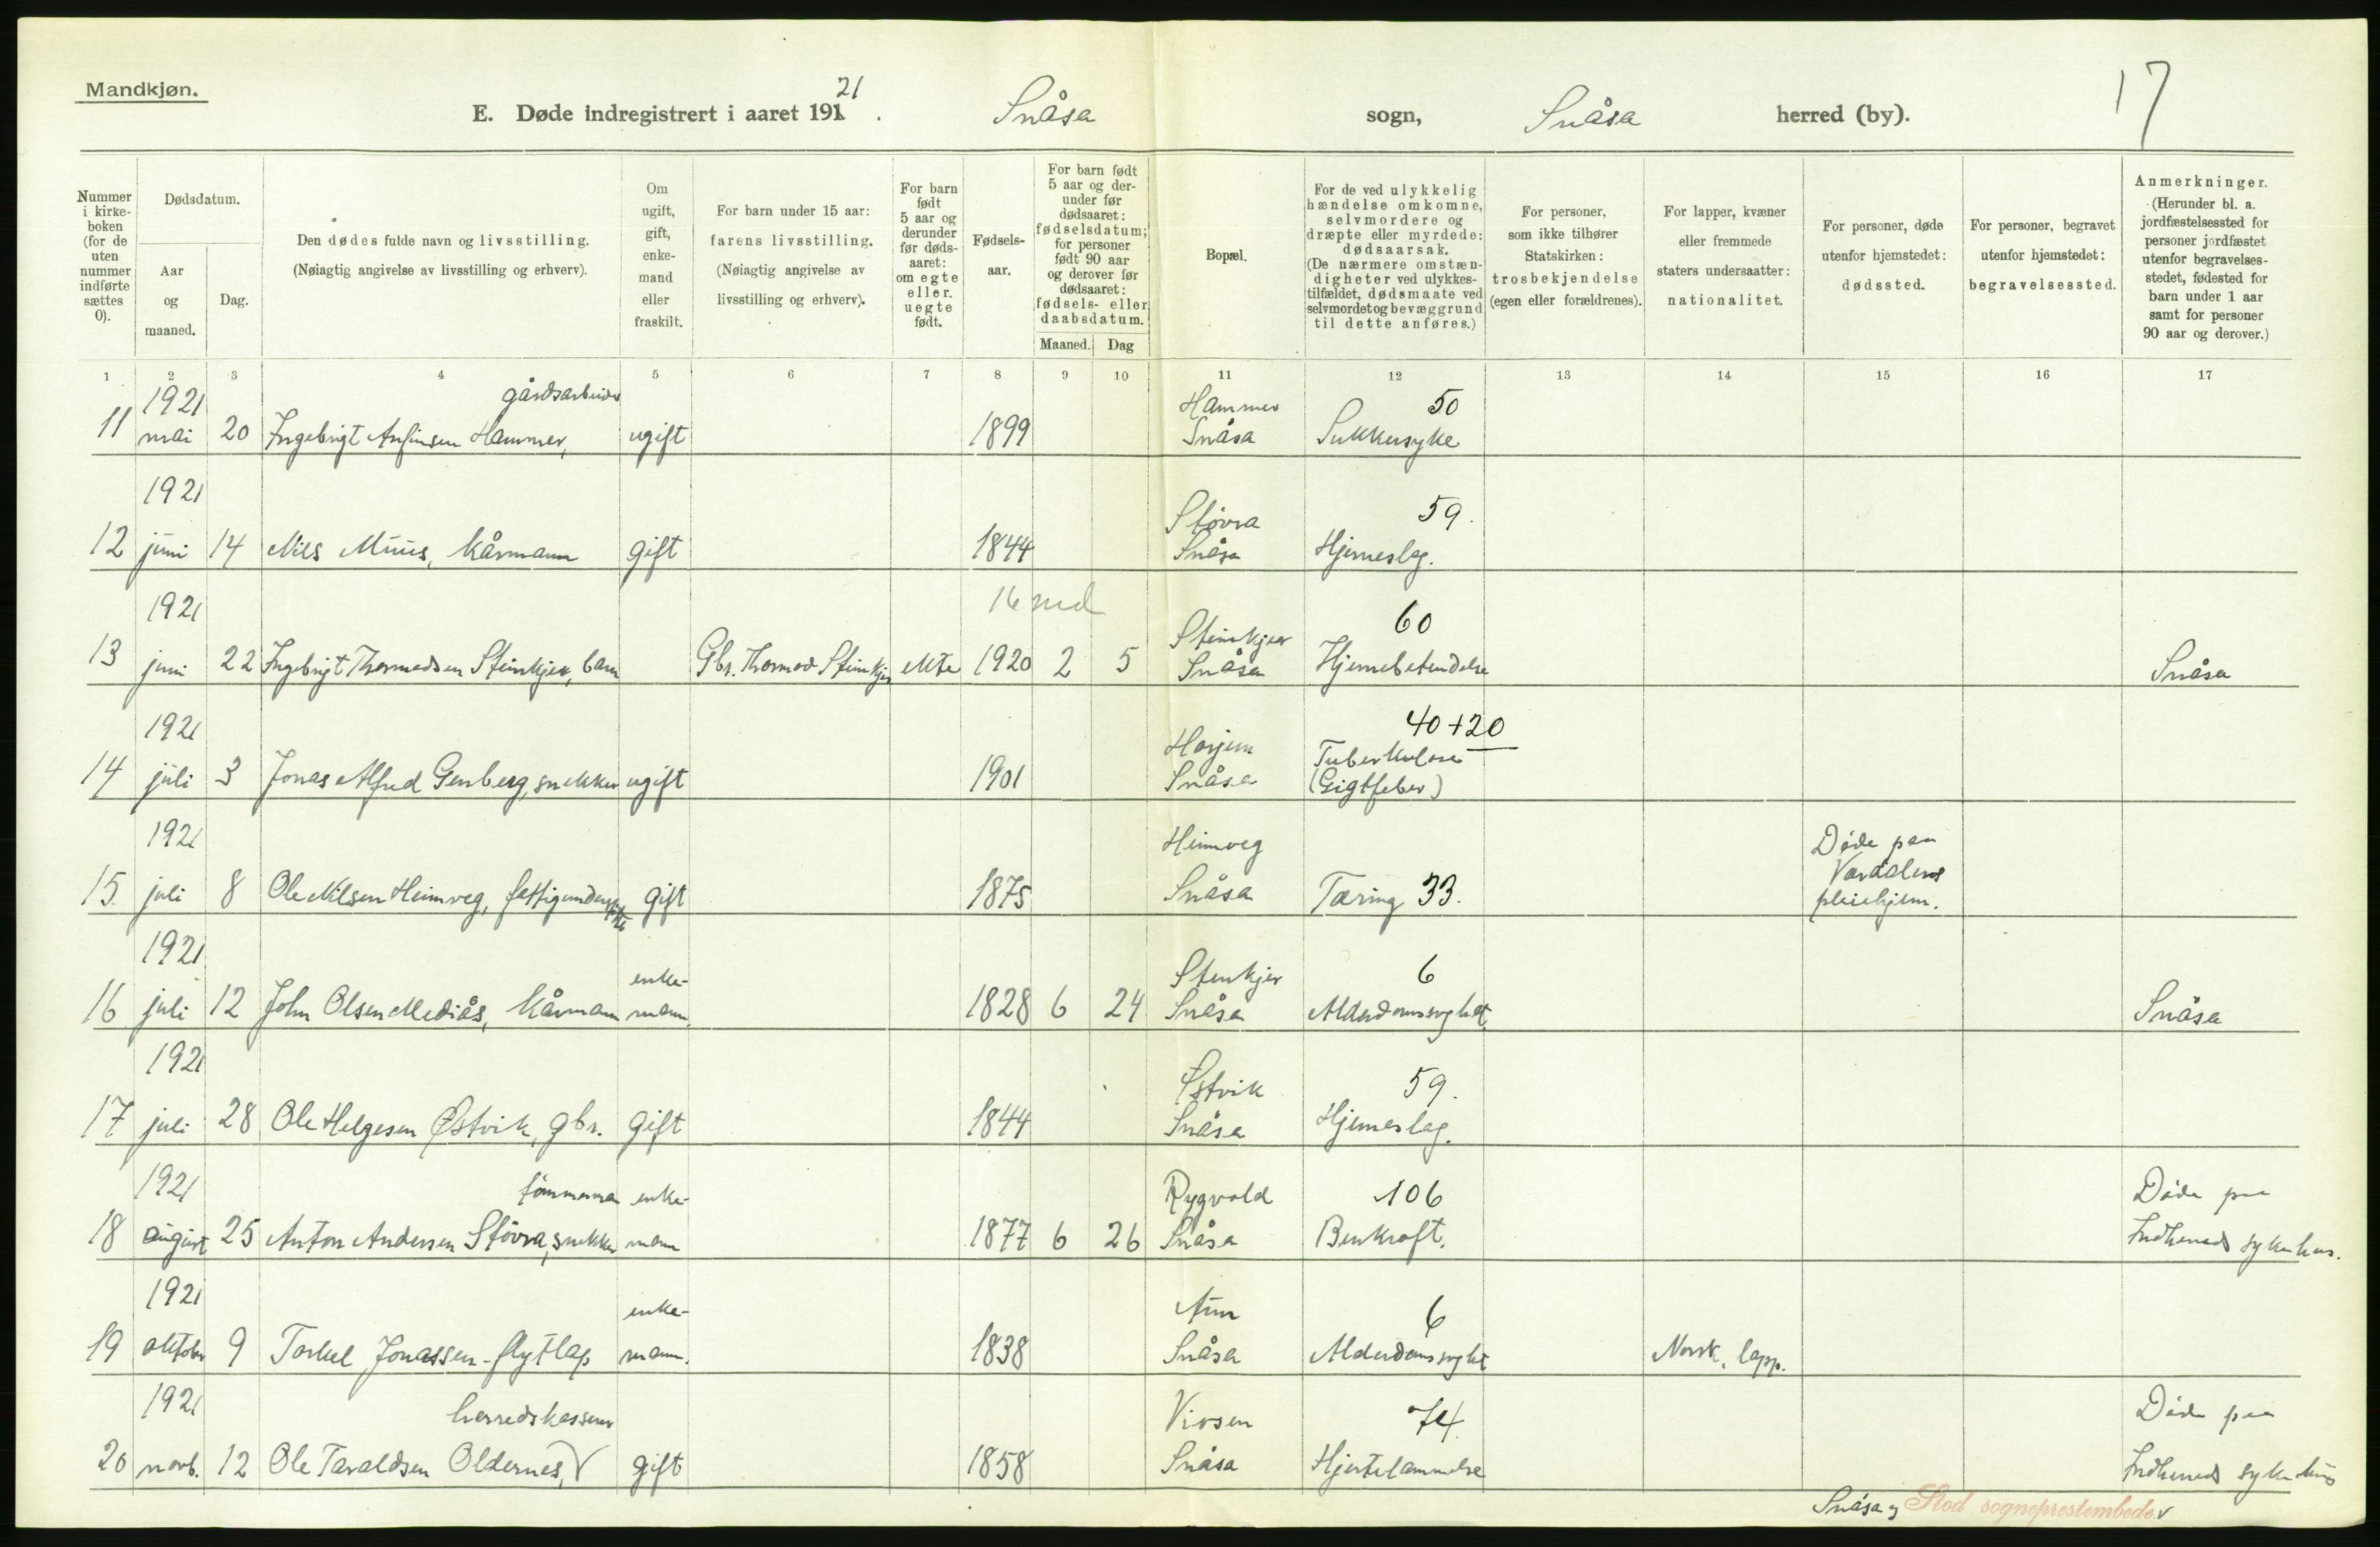 Mandkjøn.
E. Døde indregistrert i aaret 191 21. Snåsa sogn, Snåsa herred (by). 17
Nummer i kirke-boken (for de uten nummer indførte sættes 0).
Dødsdatum.
Aar og maaned.
Dag.
Den dødes fulde navn og livsstilling.
(Nøiagtig angivelse av livsstilling og erhverv).
Om ugift, gift, enke-mand eller fraskilt.
For barn under 15 aar:
farens livsstilling.
(Nøiagtig angivelse av livsstilling og erhverv).
For barn født 5 aar og derunder før døds-aaret: om egte eller uegte født.
Fødsels-aar.
For barn født 5 aar og der-under før dødsaaret: fødselsdatum; for personer født 90 aar og derover før dødsaaret: fødsels- eller daabsdatum.
Maaned. Dag
Bopæl.
For de ved ulykkelig hændelse omkomne, selvmordere og dræpte eller myrdede: dødsaarsak.
(De nærmere omstæn-digheter ved ulykkes-tilfældet, dødsmaate ved selvmordet og bevæggrund til dette anføres.)
For personer, som ikke tilhører Statskirken: trosbekjendelse (egen eller forældrenes).
For lapper, kvæner eller fremmede staters undersaatter: nationalitet.
For personer, døde utenfor hjemstedet: dødssted.
For personer, begravet utenfor hjemstedet: begravelsessted.
Anmerkninger.
(Herunder bl. a. jordfæstelsessted for personer jordfæstet utenfor begravelses-stedet, fødested for barn under 1 aar samt for personer 90 aar og derover.)
1 2 3 4 5 6 7 8 9 10 11 12 13 14 15 16 17
1921 gårdsarbeider Hammer 50
11 mai 20 Ingebrigt Anfinsen Hammer, ugift 1899 Snåsa Sukkersyke
1921 Støvra 59.
12 juni 14 Nils Muus, kårmann gift 1844 Snåsa Hjerneslag.
1921 16 md Steinkjer 60
13 juni 22 Ingebrigt Thormodsen Steinkjer, barn Gbr. Thormod Steinkjer ekte 1920 2 5 Snåsa Hjernebetendelse Snåsa
1921 Horjem 40+20
Tuberkulose
14 juli 3 Jonas Alfred Genberg, snekker ugift 1901 Snåsa (Gigtfeber)
1921 Heimveg Døde paa
Værdalens
15. juli 8 Ole Nilsen Heimveg, fattigunderstøtte gift 1875 Snåsa Tæring 33. pleiehjem.
1921 enke- Steinkjer 6
16 juli 12 John Olsen Mediås, kårmann mann. 1828 6 24 Snåsa Alderdomssvaghet Snåsa
1921 Østvik 59.
17 juli 28 Ole Helgesen Østvik, gbr. gift 1844 Snåsa Hjerneslag.
1921 enke- Rygvold 106 Døde paa
18 august 25 Anton Andersen Støvra, snekker mann 1877 6 26 Snåsa Benkræft. Indherreds sykehus.
1921 enke- 6
19 oktober 9 Torkel Jonassen - flytlap mann. 1838 Snåsa Alderdomssvaghet Norsk, lapp.
1921 herredskasserer Vivsen 74. Døde paa
20 novb. 12 Ole Taraldsen Oldernes, gift 1858 Snåsa Hjertelammelse Indherreds sykehus
Snåsa og Stod sogneprestembede